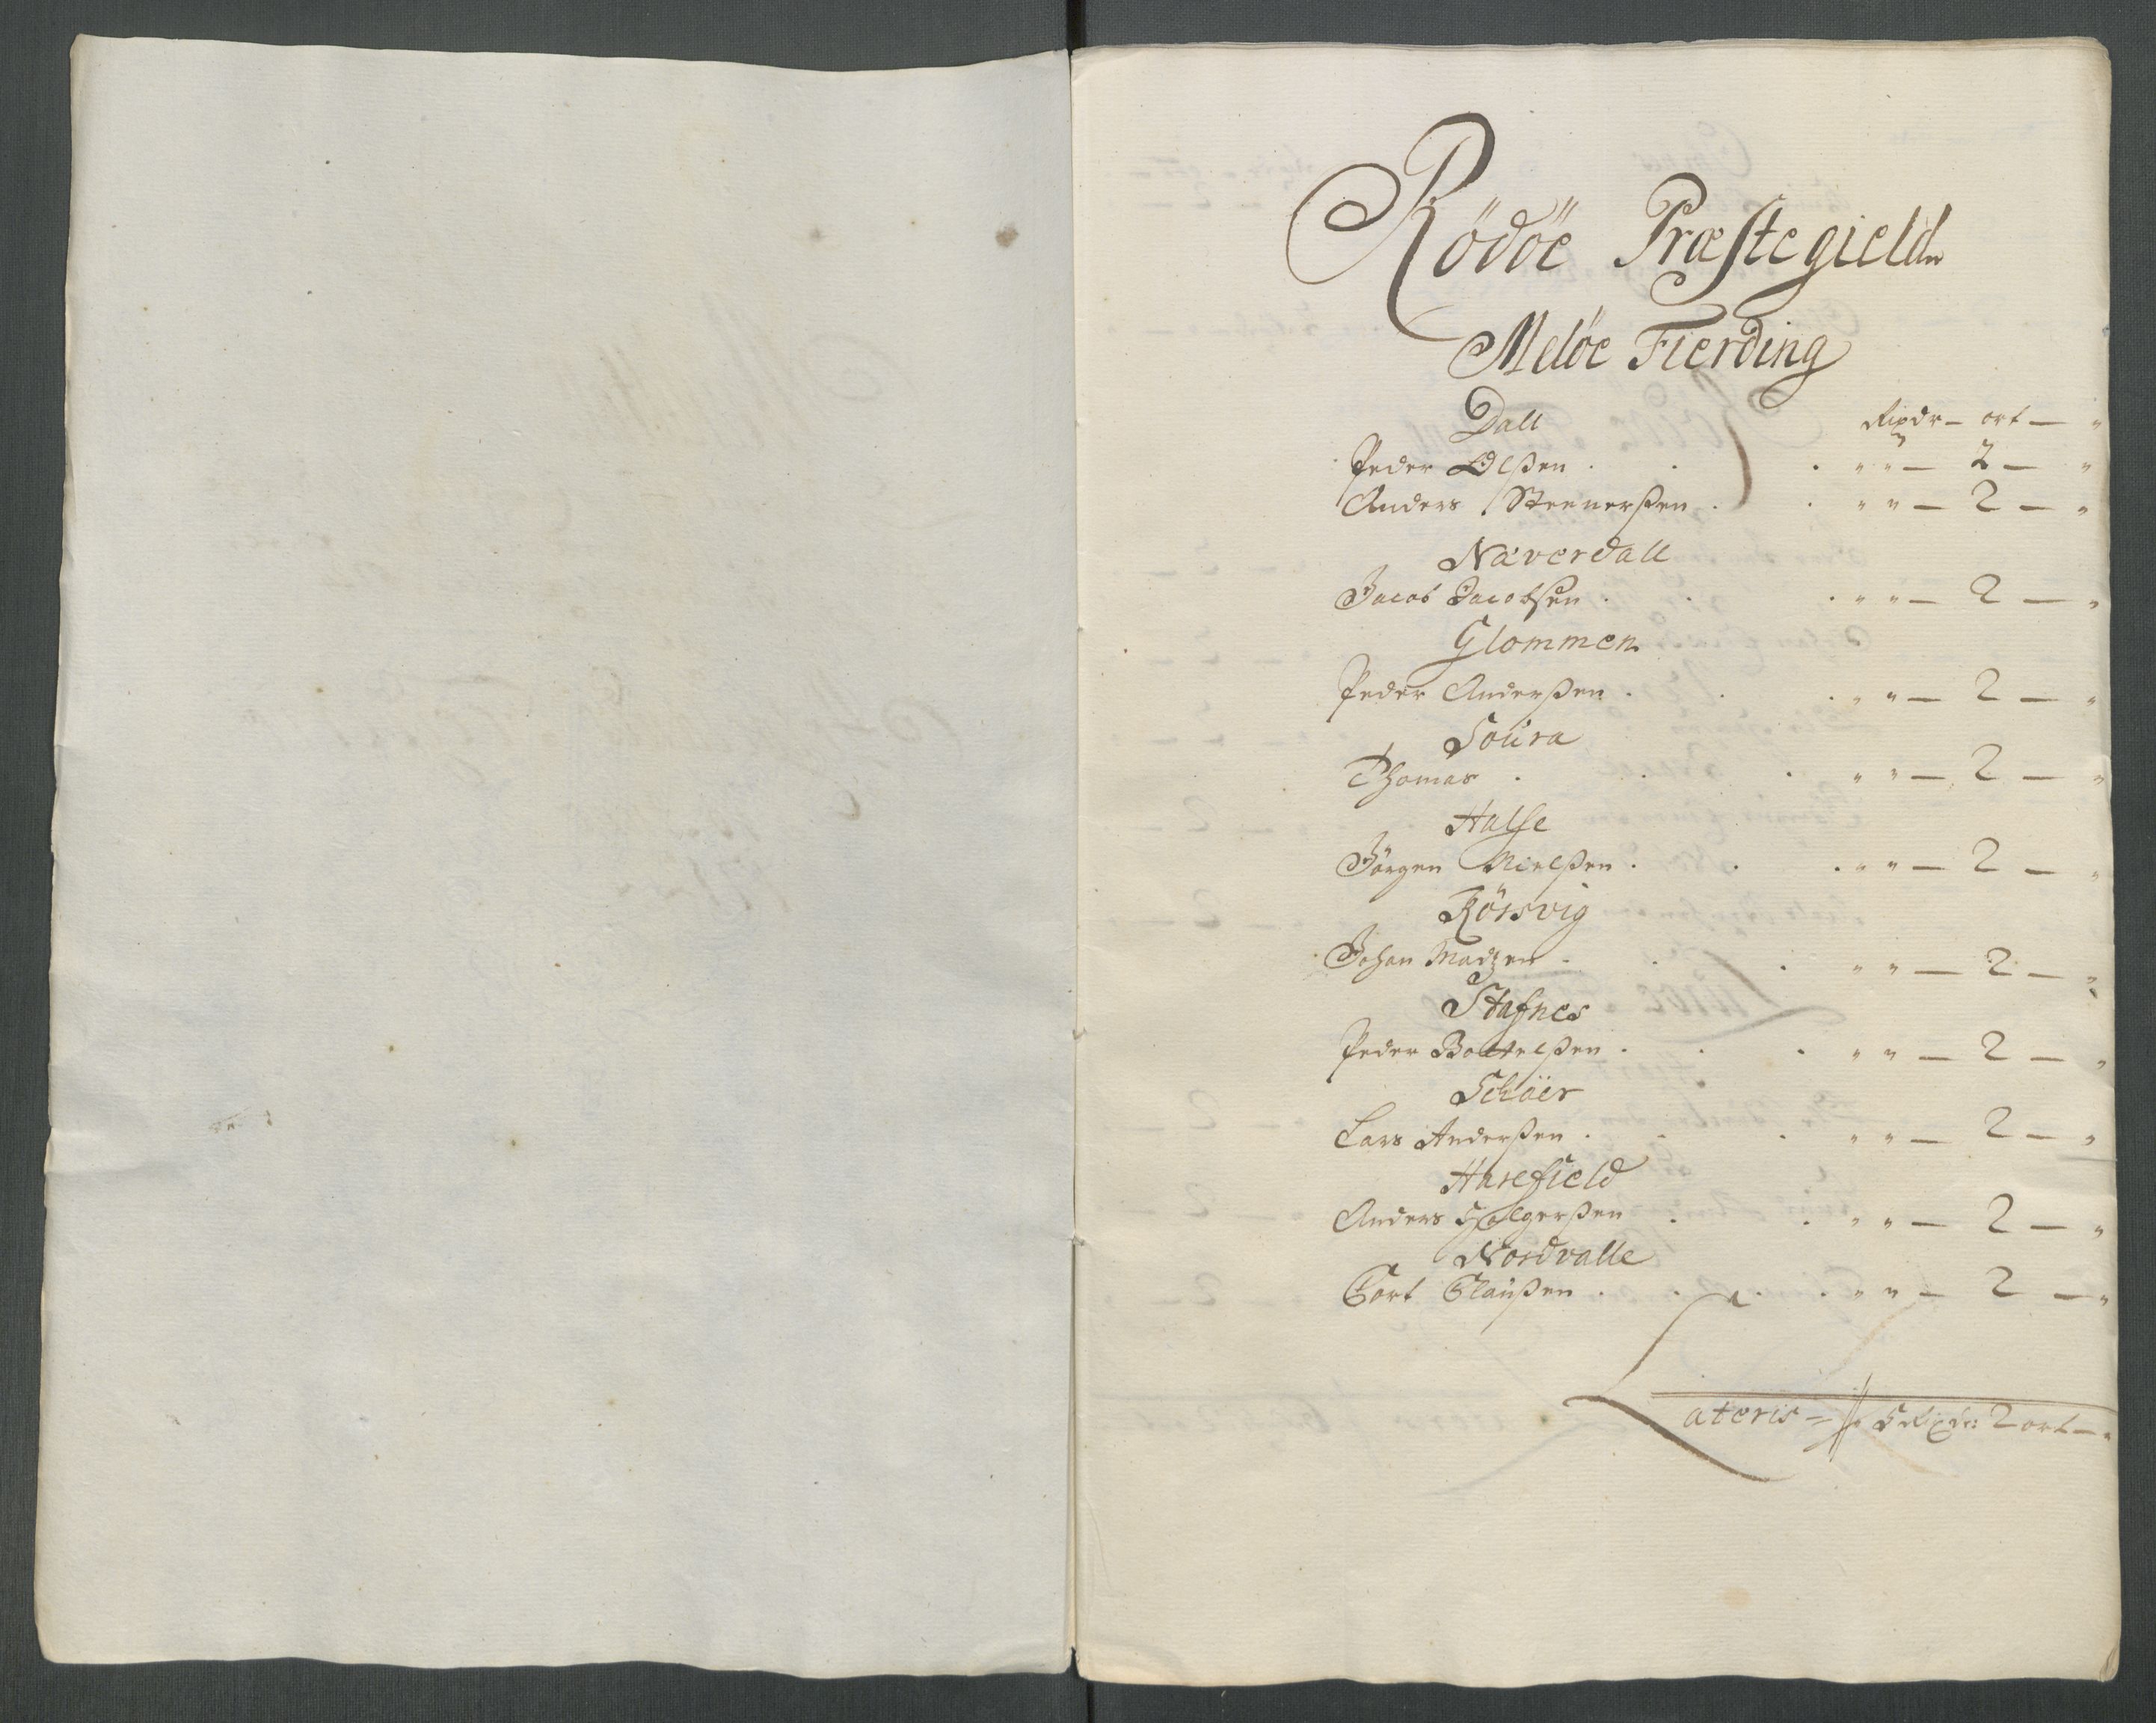 Rödöe Præstegield
Melöe Fierding
Dall Rixdr — ort — "
Peder Olßen . . . " " — 2 — "
Anders Steenerßen . . " " — 2 — "
Næverdall
Jacob Jacobsen . . . " " — 2 — "
Glommen
Peder Anderßen . . . " " — 2 — "
Soüra
Thomas . . . " " — 2 — "
Halse
Jörgen Nielßen . . . " " — 2 — "
Rösvig
Johan Madzen . . . " " — 2 — "
Stafnes
Peder Bottelßen . . . " " — 2 — "
Schöer
Lars Anderßen . . . " " — 2 — "
Harefield
Anders Holgerßen . . " " — 2 — "
Nordvalle
Cort Claüßen . . . . " " — 2 — "
Lateris = 5 Rixdr: 2 ort — "